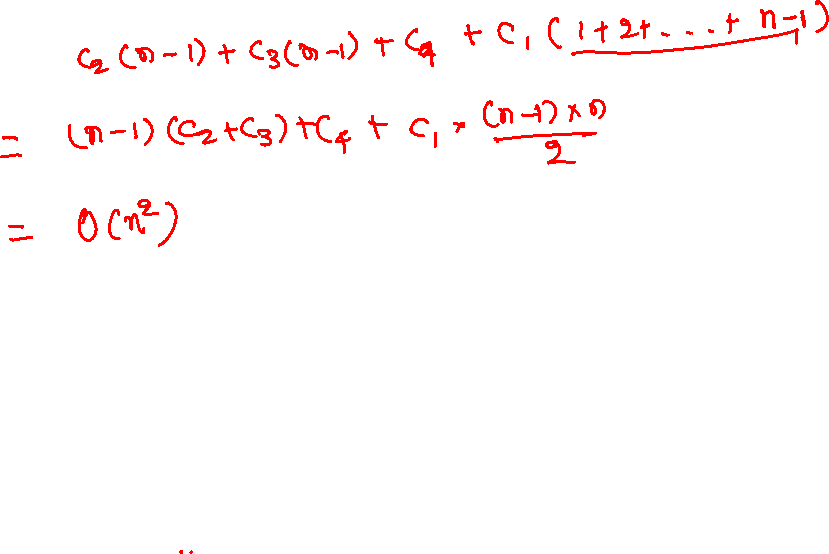 c₂(n-1) + c₃(n-1) + c₄ + c₁(1+2+...+ n-1)
= (n-1)(c₂+c₃)+c₄ + c₁ × (n-1)×n/2
= O(n²)